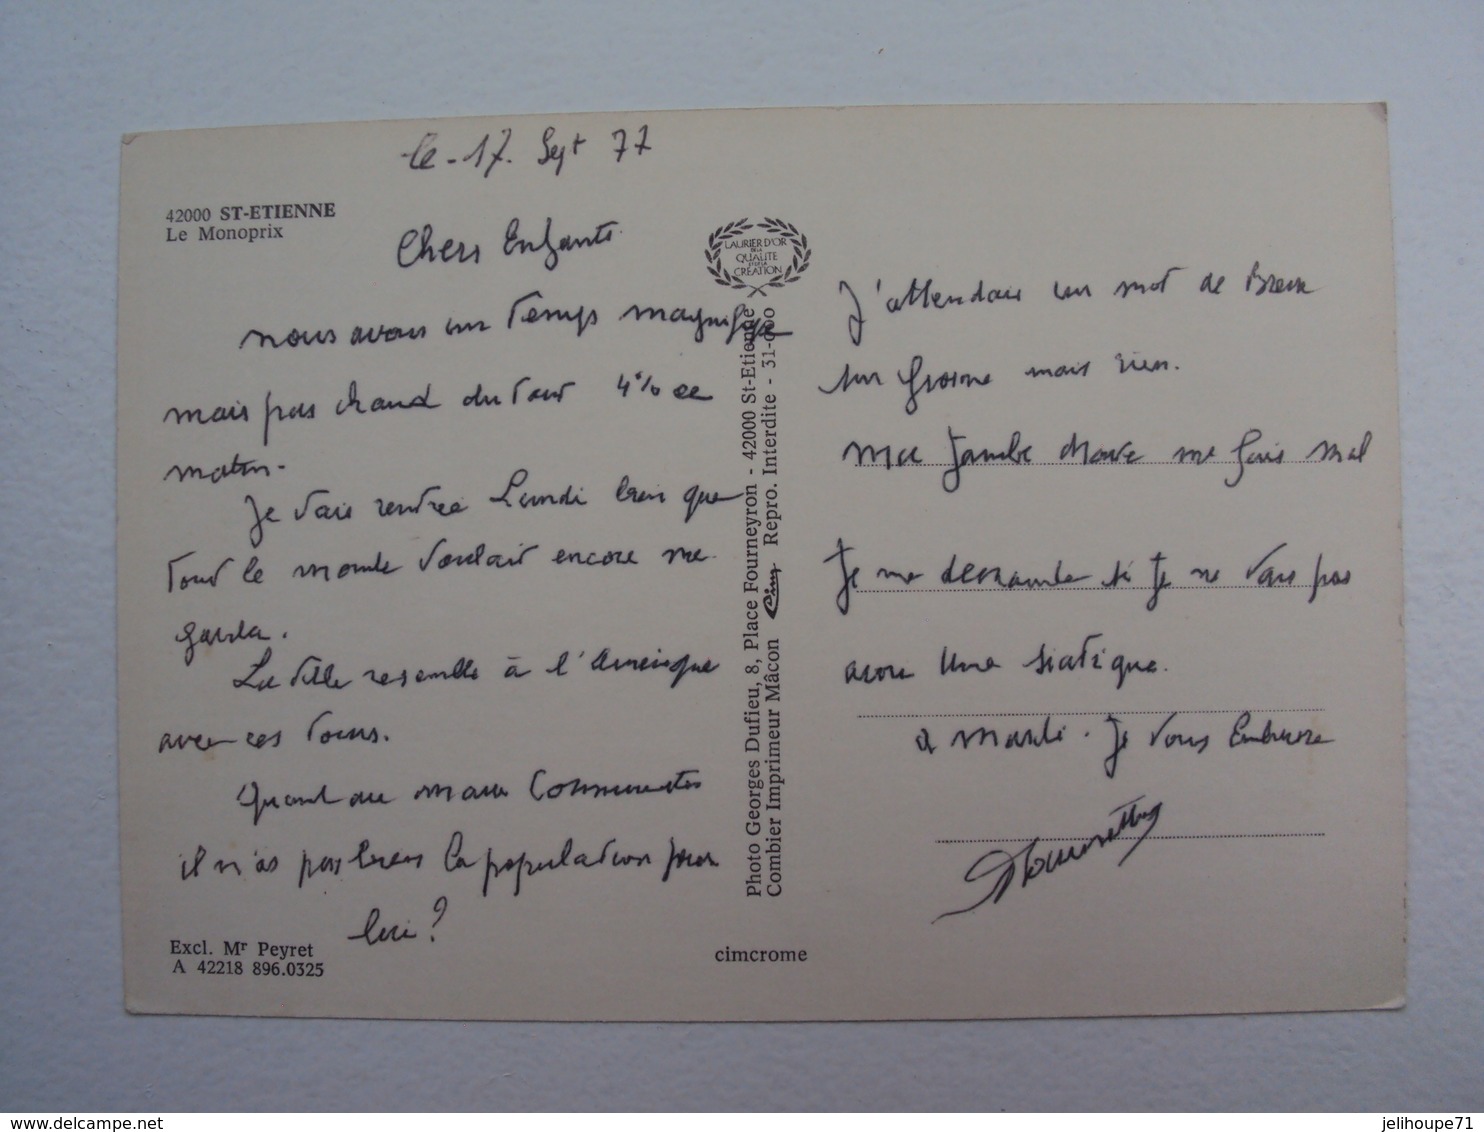 le - 17. Sept 77
42000 ST-ETIENNE
Le Monoprix
Chers Enfants
nous avons un Temps magnifique
mais pas chaud du tout 4% ce
matin.
Je vais rentrer Lundi bien que
tout le monde voulait encore me
garder.
La ville resemble à l'Amérique
avec ces tours.
Quand au maire Communiste
il n'as pas bien la population pour
lui ?
Excl. Mr Peyret
A 42218 896.0325
LAURIER D'OR
DE LA
QUALITE
ET DE LA
CREATION
Photo Georges Dufieu, 8, Place Fourneyron - 42000 St-Etienne
Combier Imprimeur Mâcon Cim Repro. Interdite - 31-0
cimcrome
J'attendais un mot de Bray
sur Grosne mais rien.
Ma Jambe me fais mal
Je me demande si Je ne vais pas
avoir une siatique.
a Mardi. Je vous Embrasse
delcampe.net
jelihoupe71